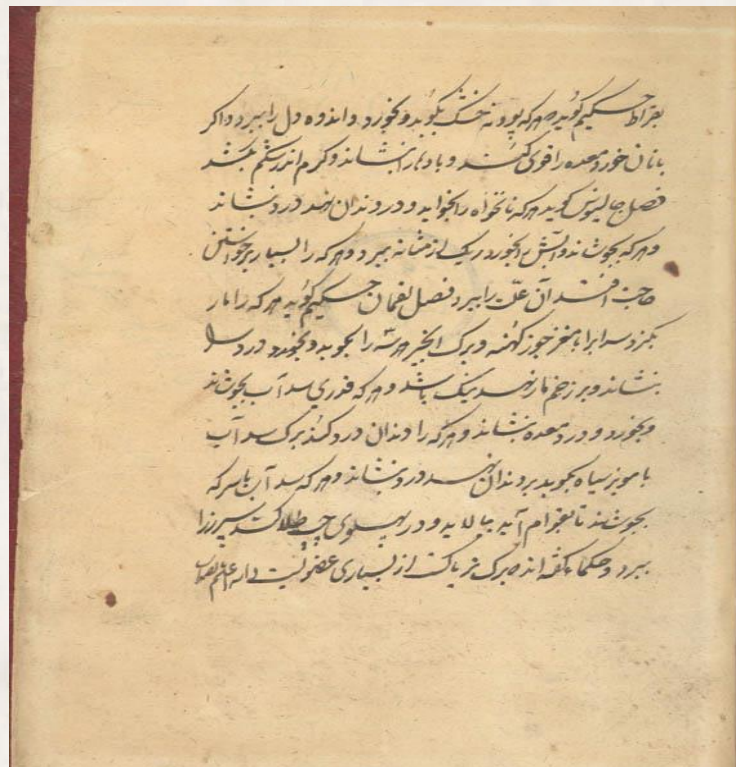 بقراط حکیم گوید هرکه پودنه خشک بکوبد و بخورد و اندوه دل را ببرد و اگر
با نان خورد معده را قوی کند و بادها را بنشاند و کرم اندر شکم بکشد
فصل جالینوس گوید هرکه نانخواه را بخواید و در دندان نهد درد بنشاند
و هرکه بجوشاند و آبش بخورد ریک از مثانه ببرد و هرکه را بسیار برخواستن
حاجت افتد آن علت را ببرد فصل لقمان حکیم گوید هرکه را مار
بگزد سداب را با مغز جوز کهنه و برک انجیر هر سه را بجوید و بخورد درد
بنشاند و بر زخم مار نهد نیک باشد و هرکه قدری سداب بجوشاند
و بخورد و درد معده بنشاند و هرکه را دندان درد کند برک سداب
با مویز سیاه بجوبد بر دندان نهد درد بنشاند و هرکه سداب با سرکه
بجوشاند تا بقوام آید بپالاید و در پهلوی چپ طلا کند سپرز را
ببرد و حکما گفته اند برک از بسیاری